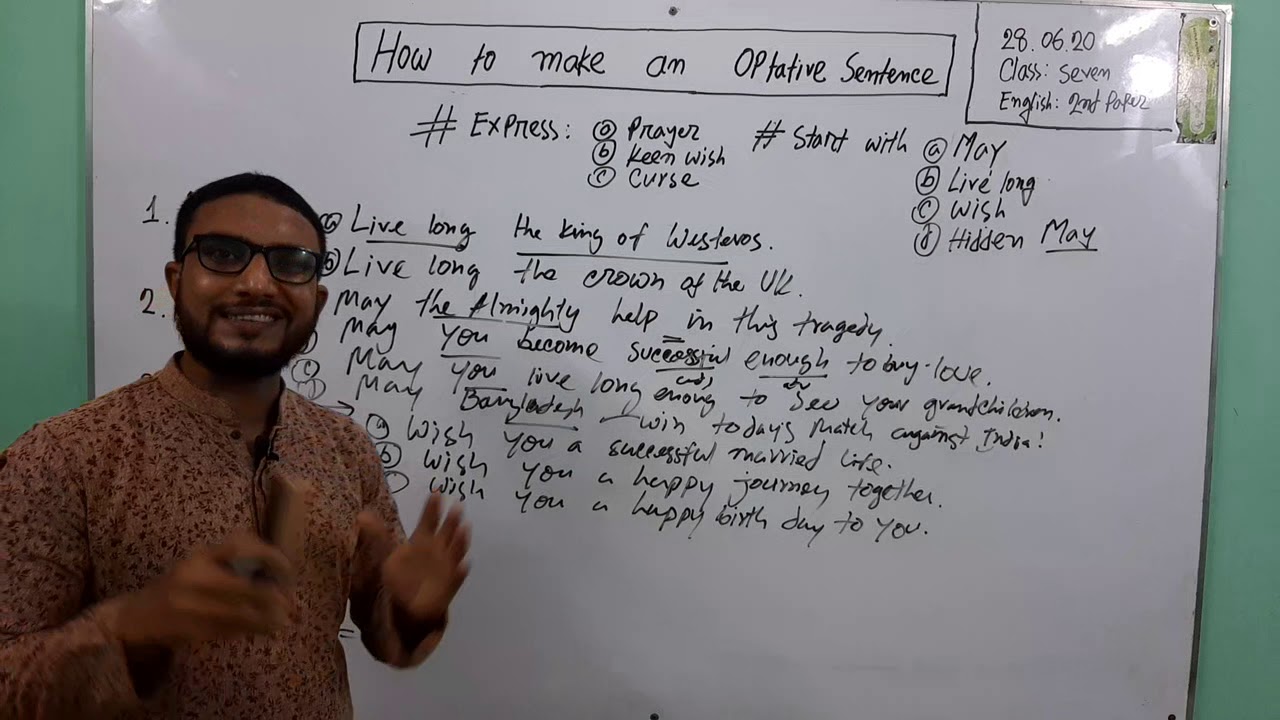 How to make an Optative Sentence
28.06.20
Class: Seven
English: 2nd Paper
# Express: (a) Prayer
(b) Keen wish
(c) Curse
# Start with (a) May
(b) Live long
(c) Wish
(d) Hidden May
1. (a) Live long the king of Westeros.
(b) Live long the crown of the UK.
2. May the Almighty help in this tragedy.
May you become successful enough to buy love.
(c) May you live long enoug to see your grandchildren.
(d) May Bangladesh win today's match against India!
(a) Wish you a successful married life.
(b) Wish you a happy journey together.
Wish you a happy birth day to you.